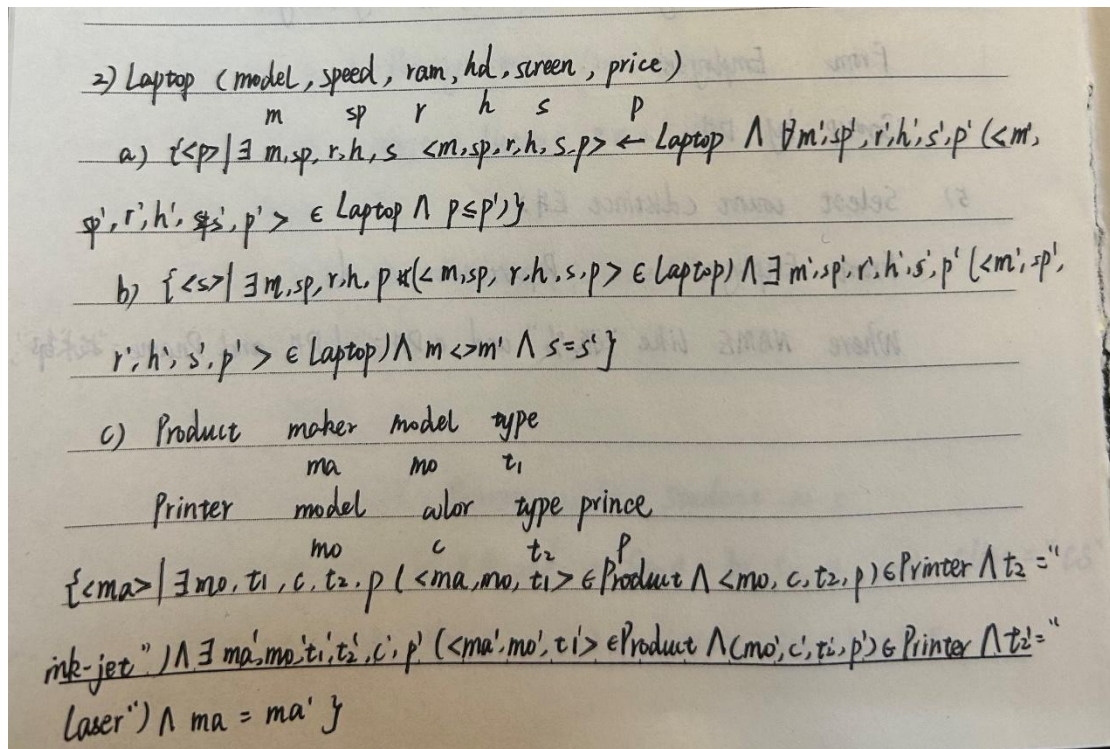 2) Laptop (model, speed, ram, hd, screen, price)
m sp r h s p
a) {<p>|∃ m,sp,r,h,s <m,sp,r,h,s,p> ← Laptop ∧ ∀m',sp',r',h',s',p' (<m',
sp',r',h',s',p'> ∈ Laptop ∧ p≤p')}
b) {<s>|∃m,sp,r,h,p (<m,sp,r,h,s,p> ∈ Laptop) ∧ ∃m',sp',r',h',s',p' (<m',sp',
r',h',s',p'> ∈ Laptop) ∧ m<>m' ∧ s=s'}
c) Product maker model type
ma mo t₁
Printer model color type prince
mo c t₂ p
{<ma>|∃mo,t₁,c,t₂,p (<ma,mo,t₁> ∈ Product ∧ <mo,c,t₂,p) ∈ Printer ∧ t₂="
ink-jet") ∧ ∃ ma',mo',t₁',t₂',c',p' (<ma',mo',t₁'> ∈ Product ∧ (mo',c',t₂',p') ∈ Printer ∧ t₂'="
Laser") ∧ ma = ma' }